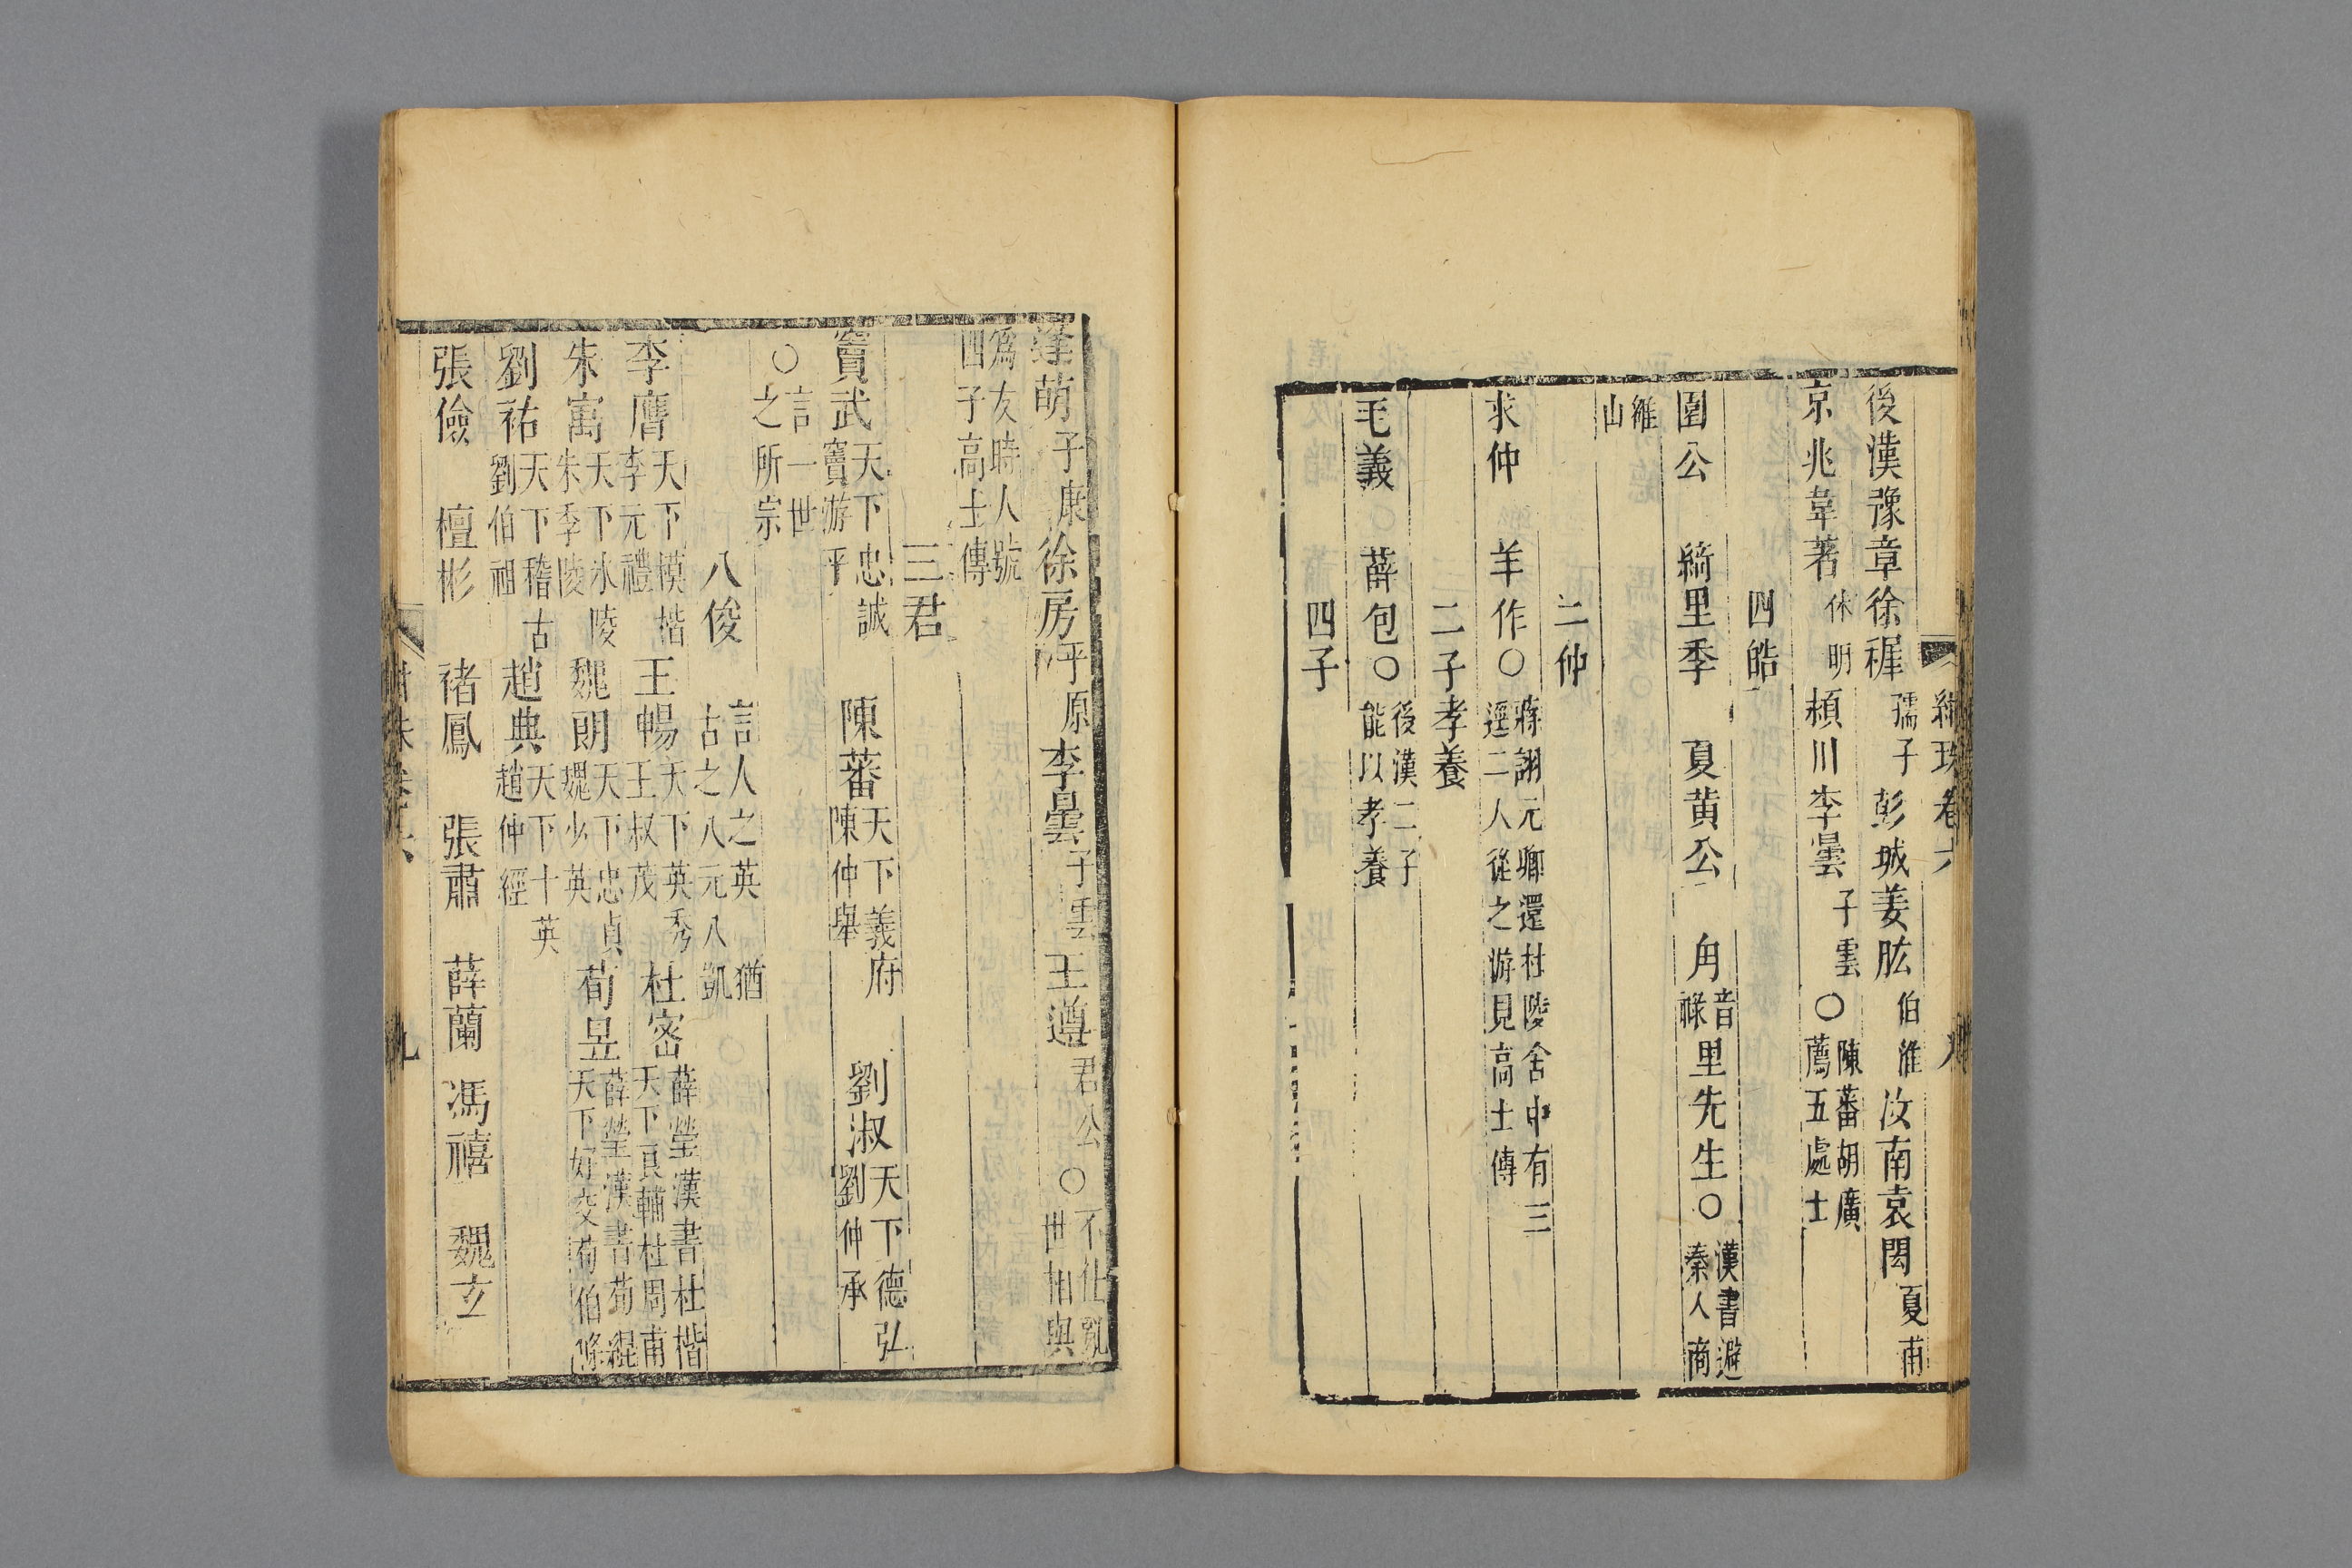 紺珠卷六 八
後漢豫章徐稺孺子彭城姜肱伯淮汝南袁閎夏甫
京兆韋著休明潁川李曇子雲○陳蕃胡廣薦五處士
四皓
園公 綺里季 夏黄公 角音祿里先生○漢書避秦人商
雒山
二仲
求仲 羊作○蔣詡元卿還杜陵舍中有三逕二人從之游見高士傳
二子孝養
毛義 薛包○後漢二子能以孝養
四子
逢萌子康徐房平原李曇子雲王遵君公○不仕亂世相與
爲友時人號四子高士傳
三君
竇武天下忠誠竇游平 陳蕃天下義府陳仲舉 劉淑天下德弘劉仲承
○言一世之所宗
八俊 言人之英猶古之八元八凱
李膺天下模楷李元禮王暢天下英秀王叔茂杜密薛瑩漢書杜楷天下良輔杜周甫
朱寓天下冰陵朱季陵魏朗天下忠貞魏少英荀昱薛瑩漢書荀緄天下好交荀伯脩
劉祐天下稽古劉伯祖趙典天下十英趙仲經
張儉 檀彬 褚鳳 張肅 薛蘭 馮禧 魏玄
九